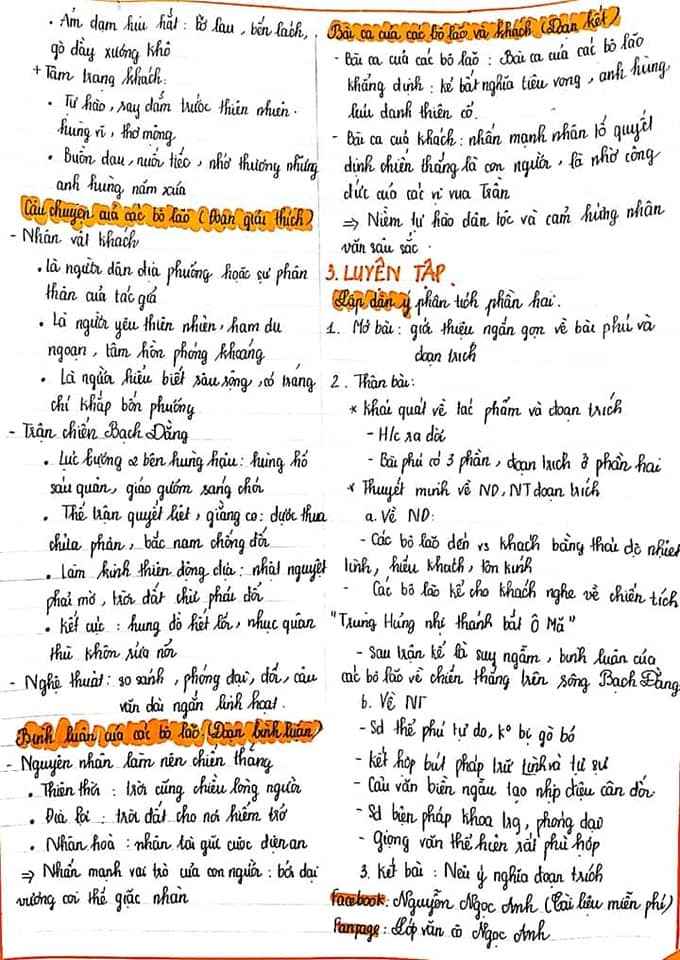 • Ảm đạm hiu hắt: bờ lau, bến lách,
gò đầy xương khô
+ Tâm trạng khách:
• Tự hào, say đắm trước thiên nhiên.
hùng vĩ, thơ mộng
• Buồn đau, nuối tiếc, nhớ thương những
anh hùng năm xưa
Câu chuyện của các bô lão (Đoạn giải thích)
- Nhân vật khách
• là người dân địa phương hoặc sự phân
thân của tác giả
• Là người yêu thiên nhiên, ham du
ngoạn, tâm hồn phóng khoáng
• Là người hiểu biết sâu rộng, có tráng
chí khắp bốn phương
- Trận chiến Bạch Đằng
• Lực lượng 2 bên hùng hậu: hùng hổ
sáu quân, giáo gươm sáng chói
• Thế trận quyết liệt, giằng co: được thua
chửa phân, bắc nam chống đối
• Làm kinh thiên động địa: nhật nguyệt
phải mờ, trời đất chừ phải đổi
• Kết cục: hung đồ hết lối, nhục quân
thù khôn rửa nổi
- Nghệ thuật: so sánh, phóng đại, đối, câu
văn dài ngắn linh hoạt.
Bình luận của các bô lão (Đoạn bình luận)
- Nguyên nhân làm nên chiến thắng
• Thiên thời: trời cũng chiều lòng người
• Địa lợi: trời đất cho nơi hiểm trở
• Nhân hoà: nhân tài giữ cuộc điện an
⇒ Nhấn mạnh vai trò của con người: bởi đại
vương coi thế giặc nhàn
Bài ca của các bô lão và khách (Đoạn kết)
- Bài ca của các bô lão: Bài ca của các bô lão
khẳng định: kẻ bất nghĩa tiêu vong, anh hùng
lưu danh thiên cổ.
- Bài ca của khách: nhấn mạnh nhân tố quyết
định chiến thắng là con người, là nhờ công
đức của các vị vua Trần
⇒ Niềm tự hào dân tộc và cảm hứng nhân
văn sâu sắc.
3. LUYỆN TẬP.
Lập dàn ý phân tích phần hai.
1. Mở bài: giới thiệu ngắn gọn về bài phú và
đoạn trích
2. Thân bài:
* Khái quát về tác phẩm và đoạn trích
- H/c ra đời
- Bài phú có 3 phần, đoạn trích ở phần hai
* Thuyết minh về ND, NT đoạn trích
a. Về ND:
- Các bô lão đến vs khách bằng thái độ nhiệt
tình, hiếu khách, tôn kính
- Các bô lão kể cho khách nghe về chiến tích
"Trùng Hưng nhị thánh bắt Ô Mã"
- Sau trận kể là suy ngẫm, bình luận của
các bô lão về chiến thắng trên sông Bạch Đằng
b. Về NT
- Sd thể phú tự do, k° bị gò bó
- Kết hợp bút pháp trữ tình và tự sự
- Câu văn biền ngẫu tạo nhịp điệu cân đối
- Sd biện pháp khoa trg, phóng đại
- Giọng văn thể hiện rất phù hợp
3. Kết bài: Nêu ý nghĩa đoạn trích
Facebook: Nguyễn Ngọc Anh (Tài liệu miễn phí)
Fanpage: Lớp văn cô Ngọc Anh